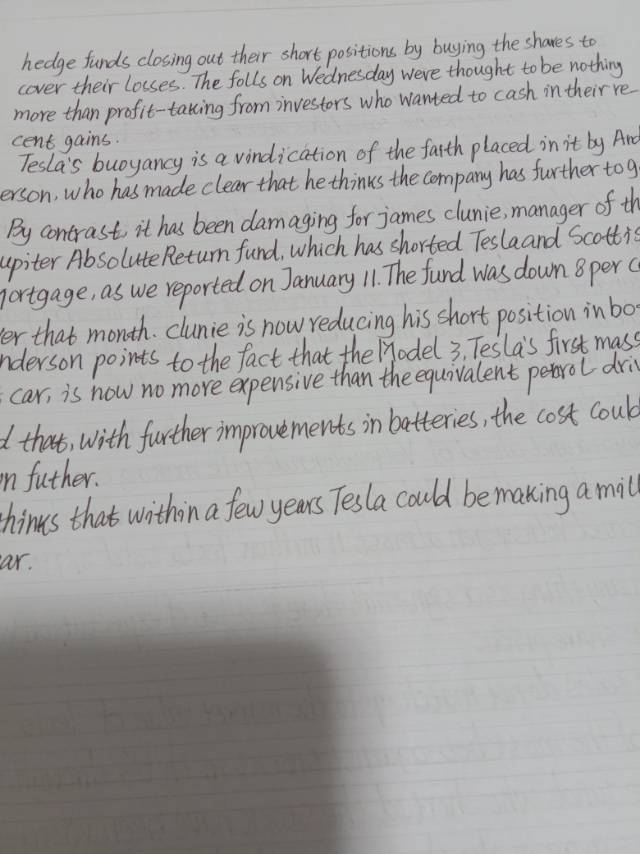 hedge funds closing out their short positions by buying the shares to
cover their losses. The falls on Wednesday were thought to be nothing
more than profit-taking from investors who wanted to cash in their re-
cent gains.
Tesla's buoyancy is a vindication of the faith placed in it by And
erson, who has made clear that he thinks the company has further to g
By contrast, it has been damaging for james clunie, manager of th
upiter Absolute Return fund, which has shorted Tesla and Scottis
ortgage, as we reported on January 11. The fund was down 8 per c
er that month. clunie is now reducing his short position in bo
nderson points to the fact that the Model 3, Tesla's first mass
car, is now no more expensive than the equivalent petrol driv
d that, with further improvements in batteries, the cost could
n futher.
hinks that within a few years Tesla could be making a mill
ar.